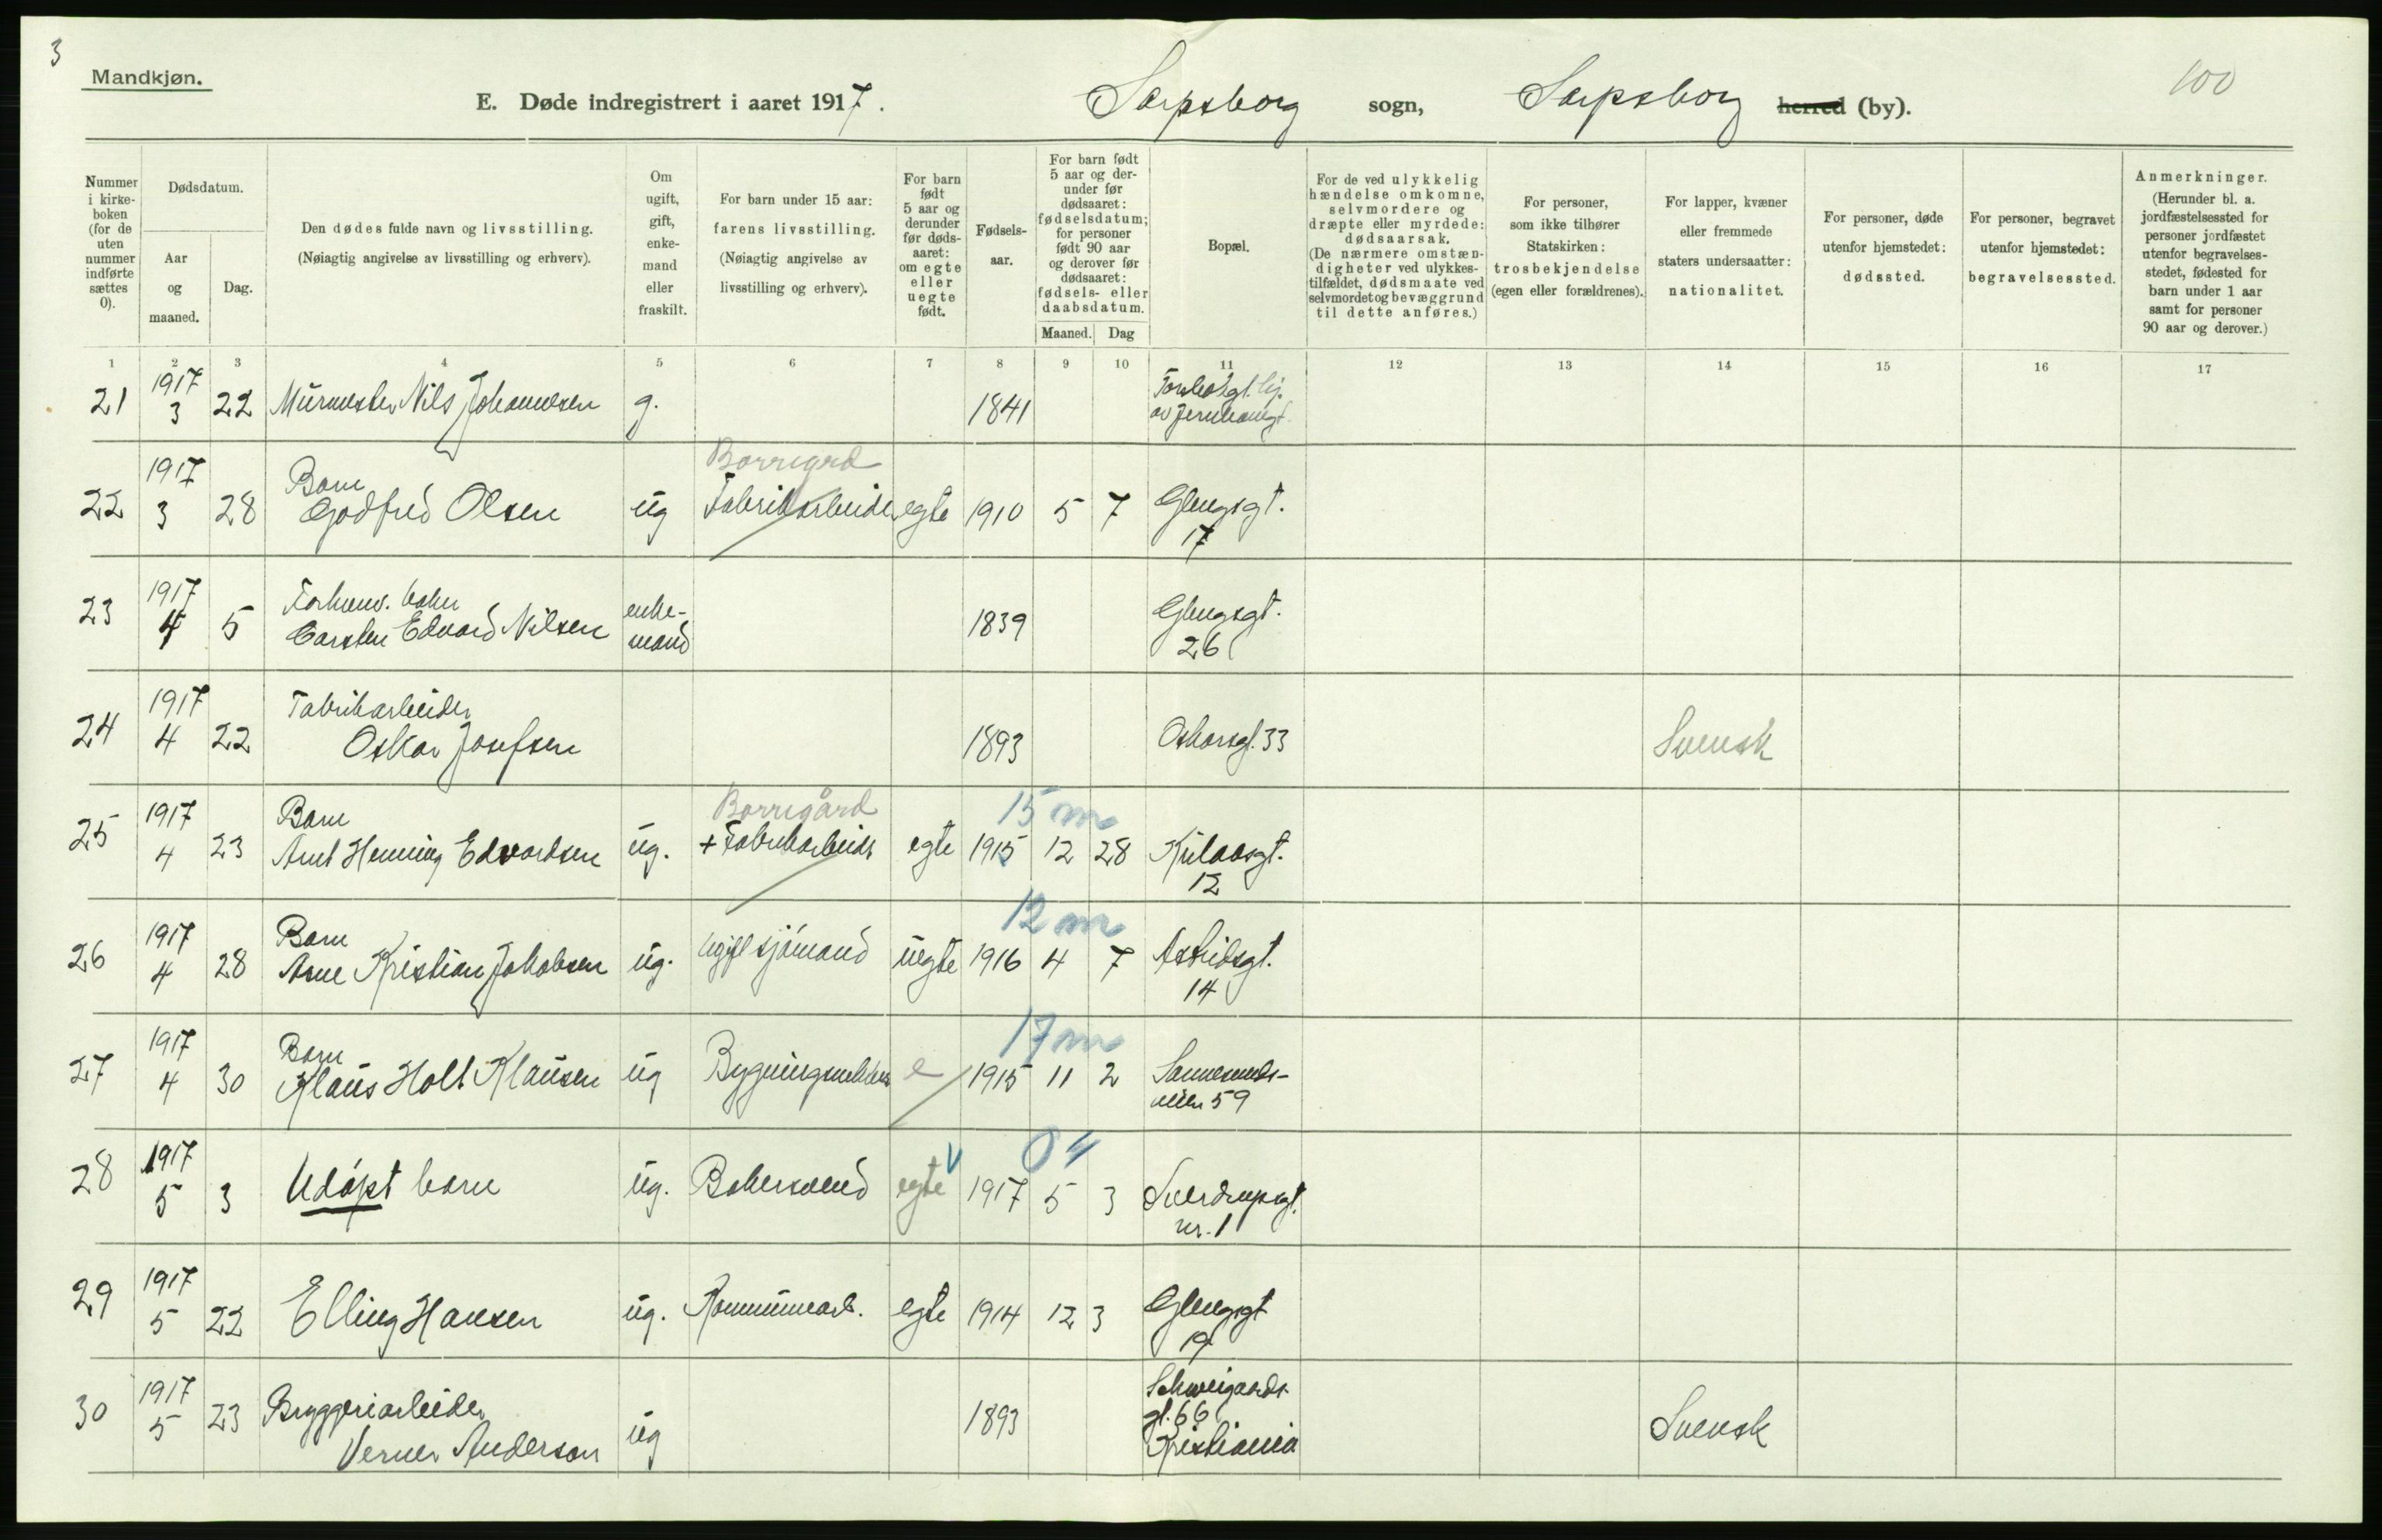 3
Mandkjøn.
100
E. Døde indregistrert i aaret 1917. Sarpsborg sogn, Sarpsborg herred (by).
Nummer i kirkeboken (for de uten nummer indførte sættes 0).
Dødsdatum.
Aar og maaned.
Dag.
Den dødes fulde navn og livsstilling.
(Nøiagtig angivelse av livsstilling og erhverv).
Om ugift, gift, enkemand eller fraskilt.
For barn under 15 aar: farens livsstilling. (Nøiagtig angivelse av livsstilling og erhverv).
For barn født 5 aar og derunder før dødsaaret: om egte eller uegte født.
Fødselsaar.
For barn født 5 aar og derunder før dødsaaret: fødselsdatum; for personer født 90 aar og derover før dødsaaret: fødsels- eller daabsdatum.
Maaned. Dag
Bopæl.
For de ved ulykkelig hændelse omkomne, selvmordere og dræpte eller myrdede: dødsaarsak. (De nærmere omstændigheter ved ulykkestilfældet, dødsmaate ved selvmordet og bevæggrund til dette anføres.)
For personer, som ikke tilhører Statskirken: trosbekjendelse (egen eller forældrenes).
For lapper, kvæner eller fremmede staters undersaatter: nationalitet.
For personer, døde utenfor hjemstedet: dødssted.
For personer, begravet utenfor hjemstedet: begravelsessted.
Anmerkninger. (Herunder bl. a. jordfæstelsessted for personer jordfæstet utenfor begravelsesstedet, fødested for barn under 1 aar samt for personer 90 aar og derover.)
1 2 3 4 5 6 7 8 9 10 11 12 13 14 15 16 17
21 1917 3 22 Murmester Nils Johannesen g. 1841 Torsbergt. hj. av Jernbanegt.
22 1917 3 28 Barn Godfred Olsen ug Borregrd Fabrikarbeider egte 1910 5 7 Glengsgt. 17
23 1917 4 5 Forhenv. baker Carsten Edvard Nilsen enkemand 1839 Glengsgt. 26
24 1917 4 22 Fabrikarbeider Oskar Josefsen 1893 Oskarsgt. 33 Svensk
25 1917 4 23 Barn Arnt Henning Edvardsen ug. Borregård + Fabrikarbeider egte 15 m 1915 12 28 Kulaasgt. 12
26 1917 4 28 Barn Arne Kristian Jakobsen ug. Ugift sjömand uegte 12 m 1916 4 7 Astridsgt. 14
27 1917 4 30 Barn Klaus Holt Klausen ug e 17 m 1915 11 2 Sannesundsveien 59
28 1917 5 3 Udöpt barn ug. Bakersvend egte 1917 5 3 Sverdrupsgt. nr. 1
29 1917 5 22 Elling Hansen ug. Kommunearb. egte 1914 12 3 Glengsgt 19
30 1917 5 23 Bryggeriarbeider Verner Anderson ug 1893 Schweigaardsgt. 66 Kristiania Svensk